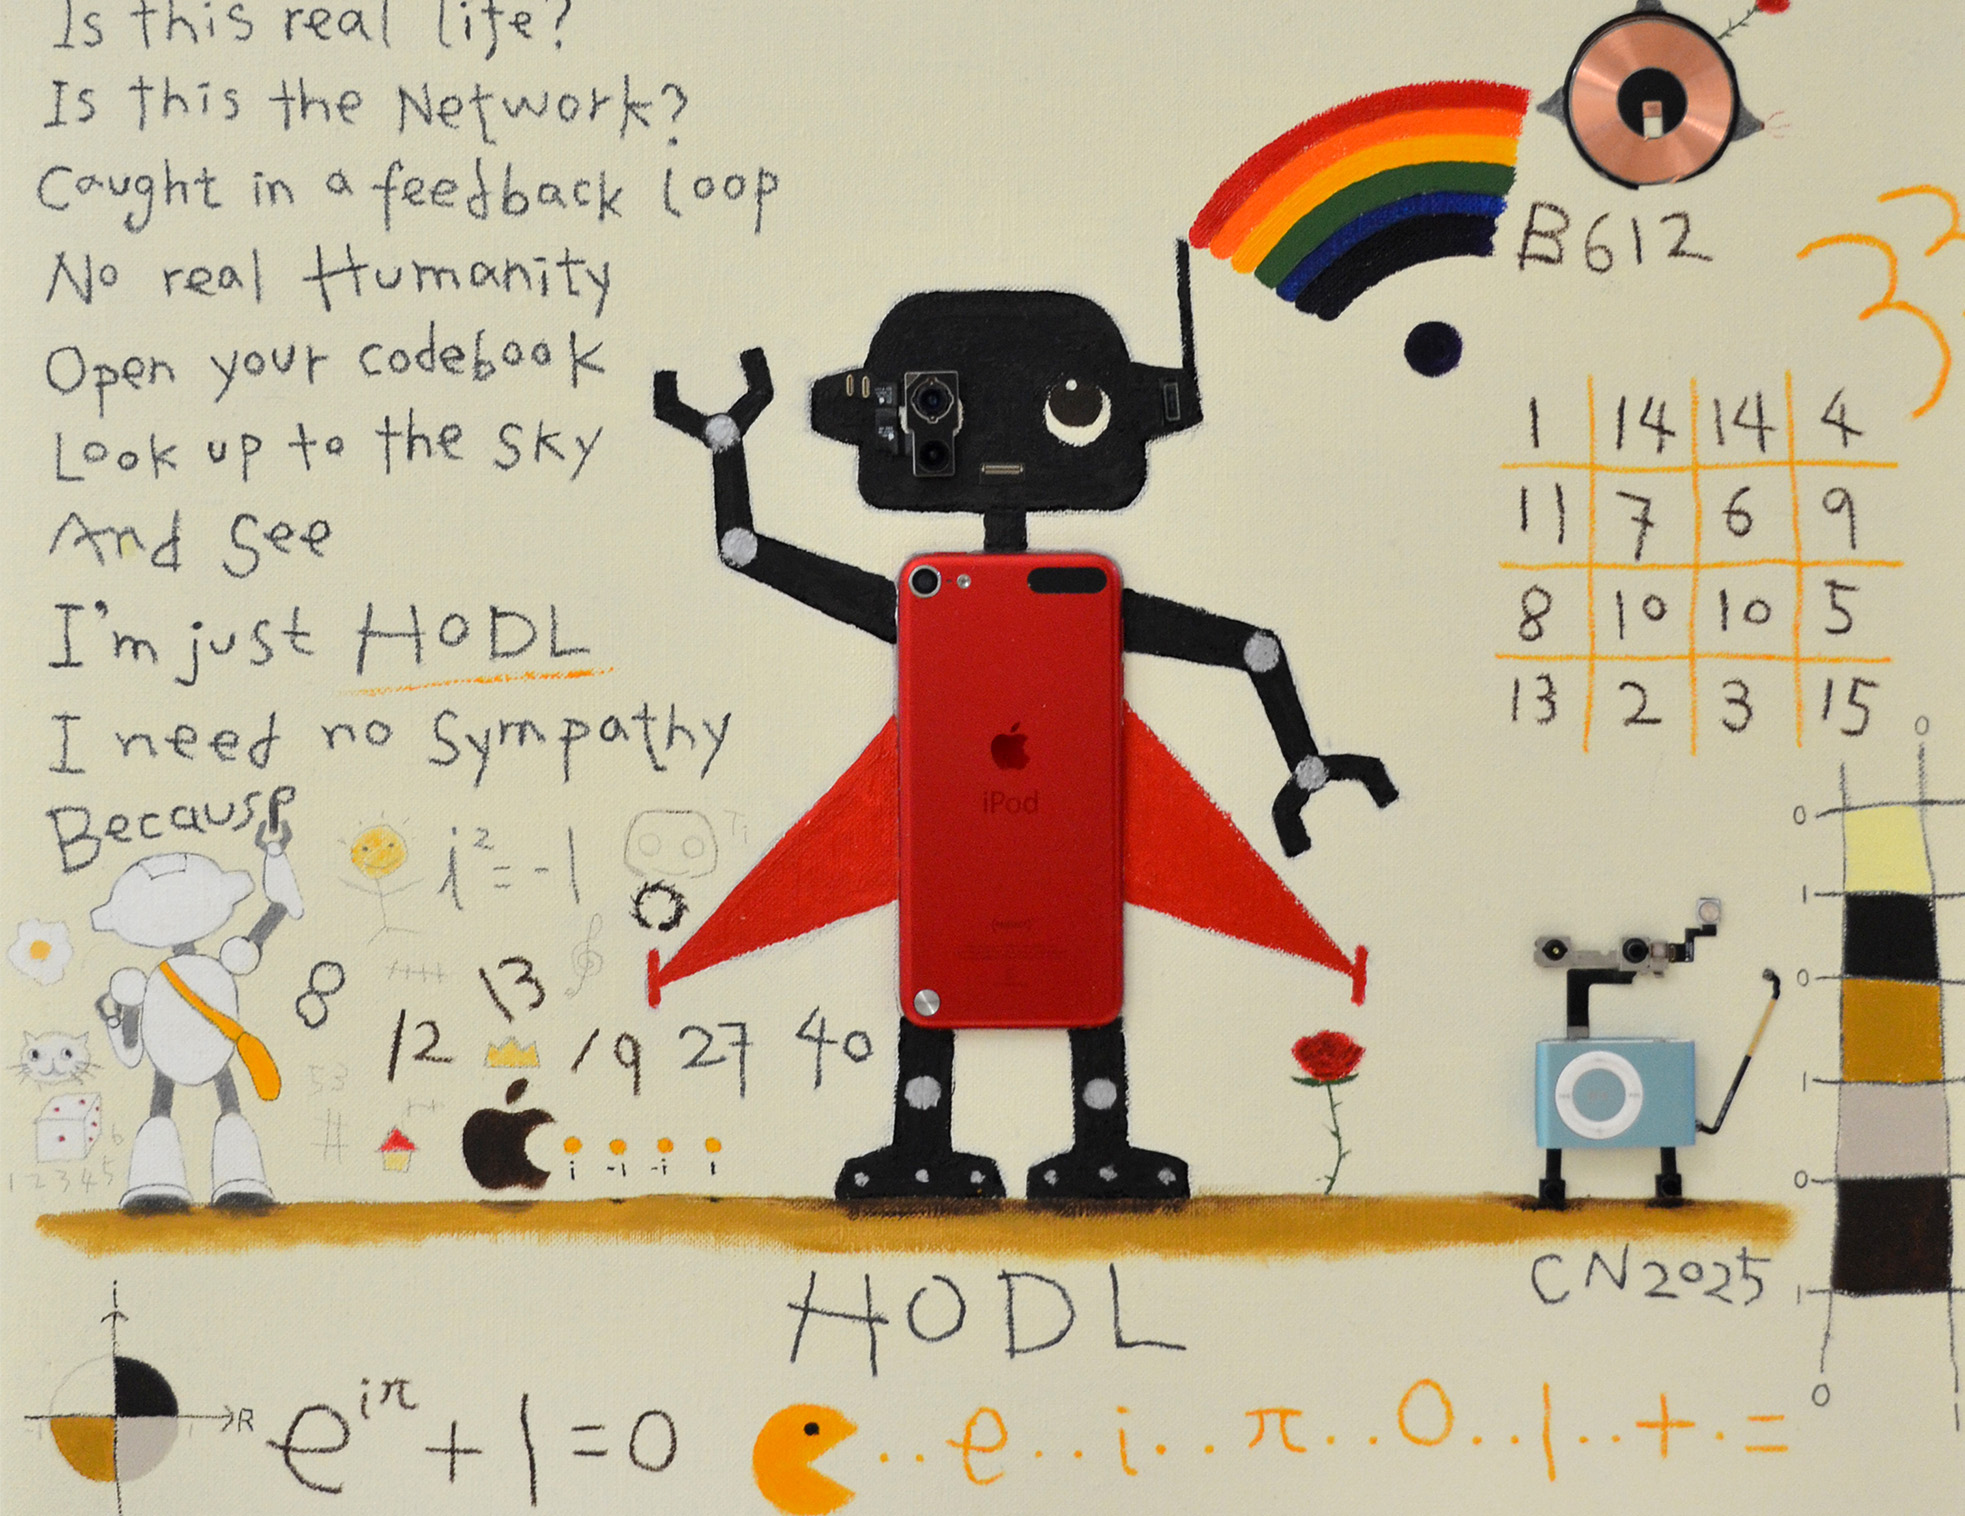 Is this real life?
Is this the Network?
Caught in a feedback loop
No real Humanity
Open your codebook
Look up to the sky
And See
I'm just HODL
I need no Sympathy
Because
B612
33
1 14 14 4
11 7 6 9
8 10 10 5
13 2 3 15
iPod
i²=-1
Ti
8
13
12 19 27 40
53
#
++
6
1 2 3 4 5
i -1 -i 1
0
0
1
0
1
0
1
0 1
CN2025
HODL
i
R
-1 1
e^iπ+1=0
..e..i..π..0..1..+.=